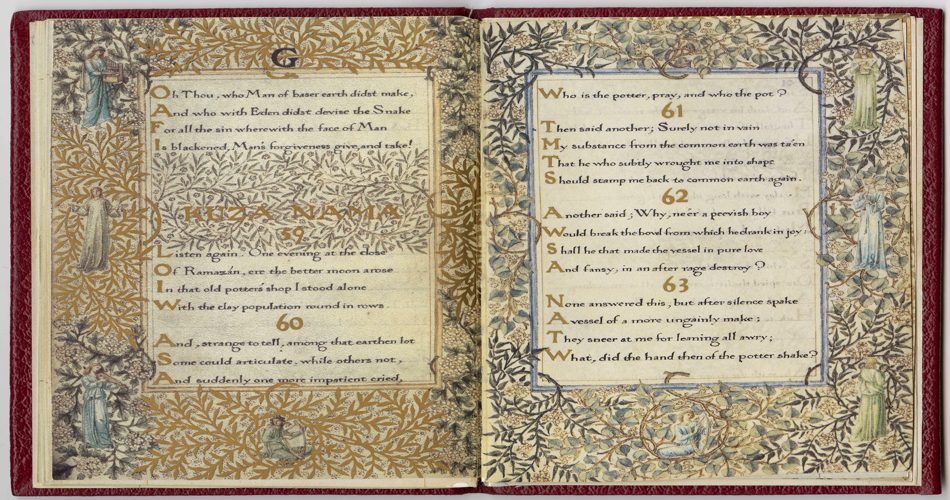 G
Oh Thou, who Man of baser earth didst make,
And who with Eden didst devise the Snake
For all the sin wherewith the face of Man
Is blackened, Man's forgiveness give, and take!
KUZA NAMA
59
Listen again. One evening at the close
Of Ramazán, ere the better moon arose
In that old potter's shop I stood alone
With the clay population round in rows
60
And, strange to tell, among that earthen lot
Some could articulate, while others not,
And suddenly one more impatient cried,
Who is the potter, pray, and who the pot?
61
Then said another; Surely not in vain
My substance from the common earth was ta'en
That he who subtly wrought me into shape
Should stamp me back to common earth again.
62
Another said; Why, ne'er a peevish boy
Would break the bowl from which he drank in joy;
Shall he that made the vessel in pure love
And fansy, in an after rage destroy?
63
None answered this, but after silence spake
A vessel of a more ungainly make;
They sneer at me for leaning all awry;
What, did the hand then of the potter shake?